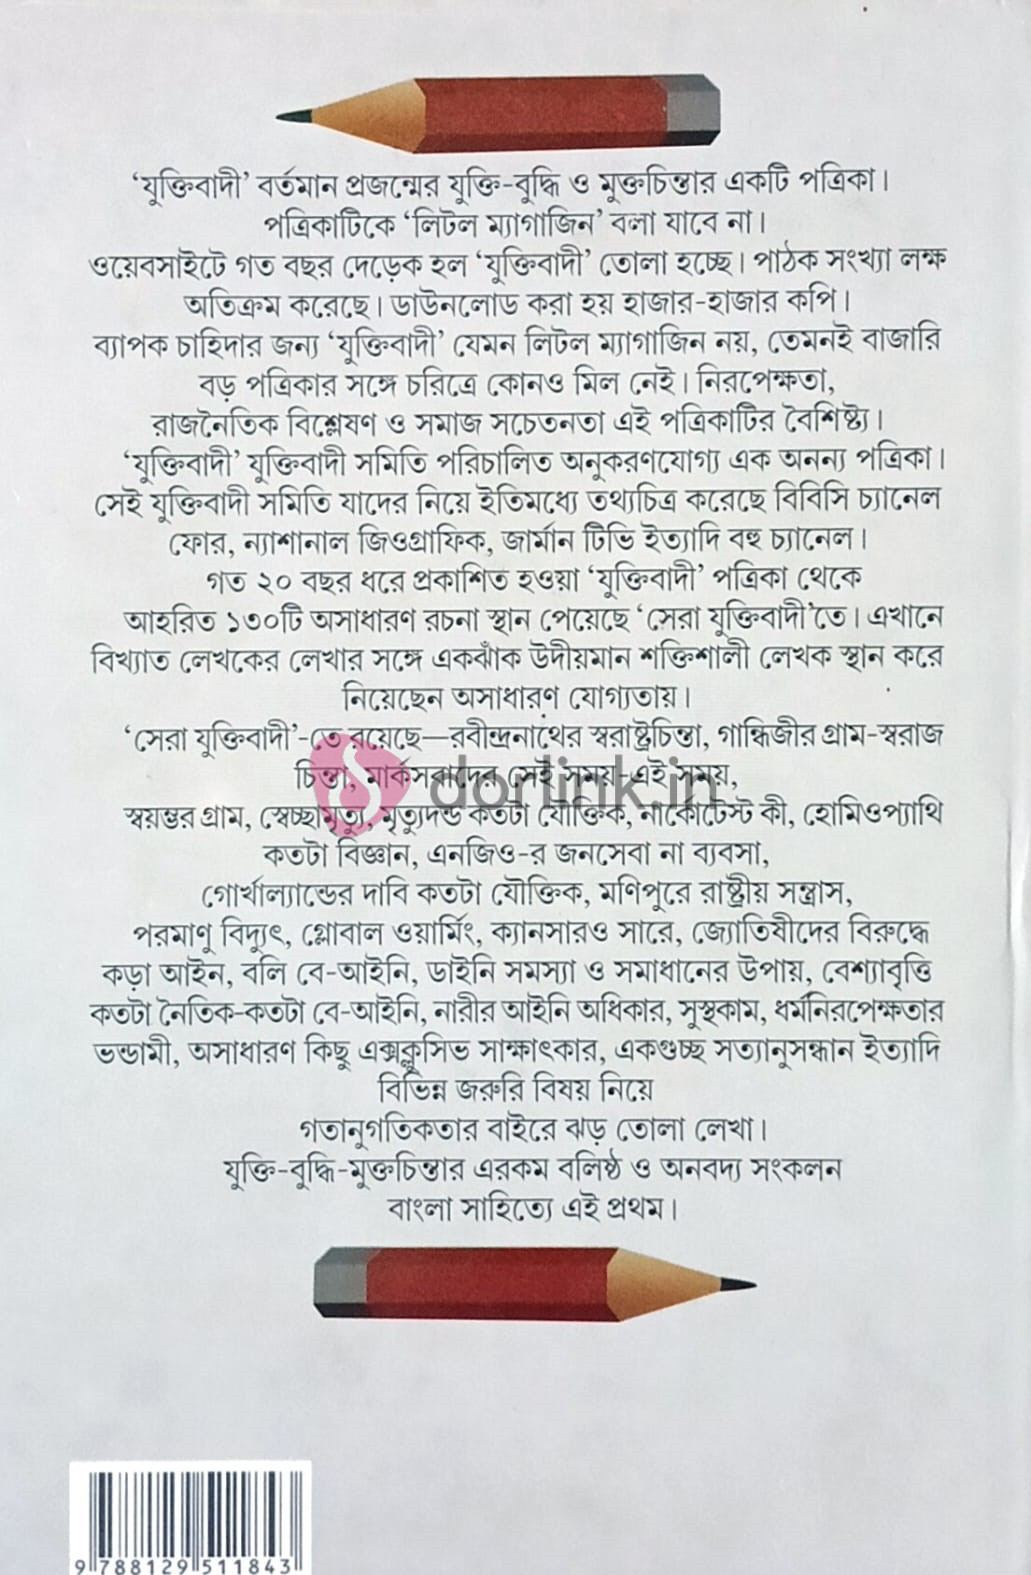 ‘যুক্তিবাদী’ বর্তমান প্রজন্মের যুক্তি-বুদ্ধি ও মুক্তচিন্তার একটি পত্রিকা।
পত্রিকাটিকে ‘লিটল ম্যাগাজিন’ বলা যাবে না।
ওয়েবসাইটে গত বছর দেড়েক হল ‘যুক্তিবাদী’ তোলা হচ্ছে। পাঠক সংখ্যা লক্ষ
অতিক্রম করেছে। ডাউনলোড করা হয় হাজার-হাজার কপি।
ব্যাপক চাহিদার জন্য ‘যুক্তিবাদী’ যেমন লিটল ম্যাগাজিন নয়, তেমনই বাজারি
বড় পত্রিকার সঙ্গে চরিত্রে কোনও মিল নেই। নিরপেক্ষতা,
রাজনৈতিক বিশ্লেষণ ও সমাজ সচেতনতা এই পত্রিকাটির বৈশিষ্ট্য।
‘যুক্তিবাদী’ যুক্তিবাদী সমিতি পরিচালিত অনুকরণযোগ্য এক অনন্য পত্রিকা।
সেই যুক্তিবাদী সমিতি যাদের নিয়ে ইতিমধ্যে তথ্যচিত্র করেছে বিবিসি চ্যানেল
ফোর, ন্যাশানাল জিওগ্রাফিক, জার্মান টিভি ইত্যাদি বহু চ্যানেল।
গত ২০ বছর ধরে প্রকাশিত হওয়া ‘যুক্তিবাদী’ পত্রিকা থেকে
আহরিত ১৩০টি অসাধারণ রচনা স্থান পেয়েছে ‘সেরা যুক্তিবাদী’তে। এখানে
বিখ্যাত লেখকের লেখার সঙ্গে একঝাঁক উদীয়মান শক্তিশালী লেখক স্থান করে
নিয়েছেন অসাধারণ যোগ্যতায়।
‘সেরা যুক্তিবাদী’-তে রয়েছে—রবীন্দ্রনাথের স্বরাষ্ট্রচিন্তা, গান্ধিজীর গ্রাম-স্বরাজ
চিন্তা, মার্কসবাদের সেই সময়-এই সময়,
dorlink.in
স্বয়ম্ভর গ্রাম, স্বেচ্ছামৃত্যু, মৃত্যুদন্ড কতটা যৌক্তিক, নার্কোটেস্ট কী, হোমিওপ্যাথি
কতটা বিজ্ঞান, এনজিও-র জনসেবা না ব্যবসা,
গোর্খাল্যান্ডের দাবি কতটা যৌক্তিক, মণিপুরে রাষ্ট্রীয় সন্ত্রাস,
পরমাণু বিদ্যুৎ, গ্লোবাল ওয়ার্মিং, ক্যানসারও সারে, জ্যোতিষীদের বিরুদ্ধে
কড়া আইন, বলি বে-আইনি, ডাইনি সমস্যা ও সমাধানের উপায়, বেশ্যাবৃত্তি
কতটা নৈতিক-কতটা বে-আইনি, নারীর আইনি অধিকার, সুস্থকাম, ধর্মনিরপেক্ষতার
ভন্ডামী, অসাধারণ কিছু এক্সক্লুসিভ সাক্ষাৎকার, একগুচ্ছ সত্যানুসন্ধান ইত্যাদি
বিভিন্ন জরুরি বিষয় নিয়ে
গতানুগতিকতার বাইরে ঝড় তোলা লেখা।
যুক্তি-বুদ্ধি-মুক্তচিন্তার এরকম বলিষ্ঠ ও অনবদ্য সংকলন
বাংলা সাহিত্যে এই প্রথম।
9 788129 511843